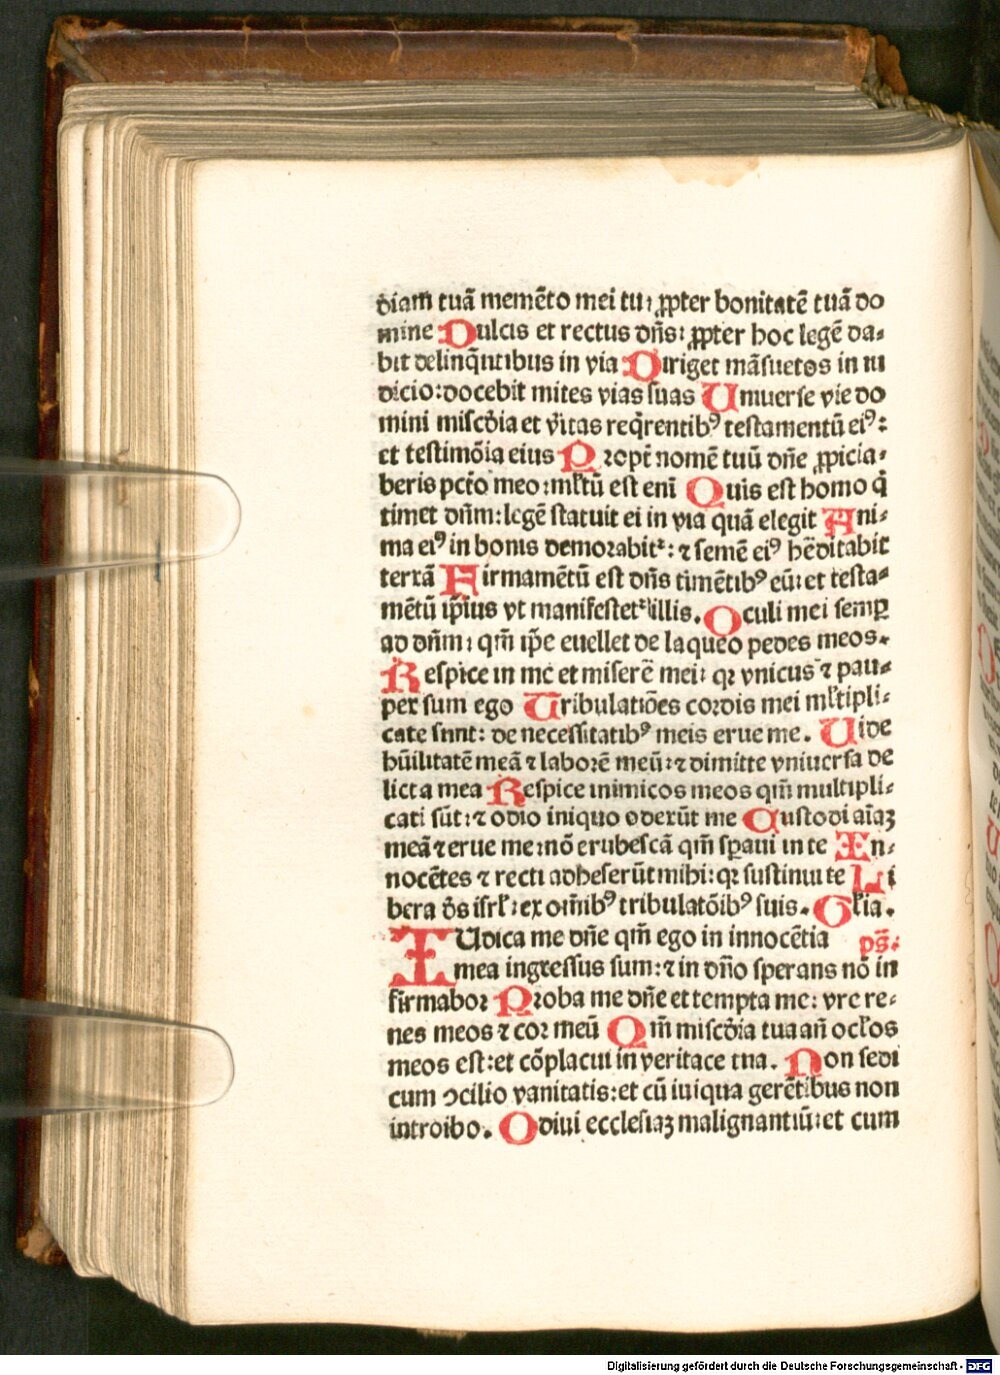 diam tuā memēto mei tu: ꝓpter bonitatē tuā do
mine Dulcis et rectus dñs: ꝓpter hoc legē da-
bit delinq̄ntibus in via Diriget māsuetos in iu
dicio: docebit mites vias suas Uniuerse vie do
mini miscd̄ia et v̄itas req̇rentibꝰ testamentū eiꝰ:
et testimōia eius Propt̄ nomē tuū dñe ꝓpicia-
beris pctō meo: ml̄tū est eni Quis est homo q̇
timet dñm: legē statuit ei in via quā elegit Ani-
ma eiꝰ in bonis demorabit᷑: ⁊ semē eiꝰ hēditabit
terrā Firmamētū est dñs timētibꝰ eū: et testa-
mētū ip̄ius vt manifestet᷑ illis. Oculi mei semꝑ
ad dñm: qm̄ ip̄e euellet de laqueo pedes meos.
Respice in me et miserē mei: qꝛ vnicus ⁊ pau-
per sum ego Tribulatiōes cordis mei ml̄tipli-
cate snnt: de necessitatibꝰ meis erue me. Uide
hūilitatē meā ⁊ laborē meū: ⁊ dimitte vniuersa de
licta mea Respice inimicos meos qm̄ multipli-
cati sūt: ⁊ odio iniquo oderūt me Custodi aīaꝫ
meā ⁊ erue me: nō erubescā qm̄ sꝑaui in te In-
nocētes ⁊ recti adheserūt mihi: qꝛ sustinui te Li
bera d̄s isrl̄: ex om̄ibꝰ tribulatōibꝰ suis. Gl̄ia.
IUdica me dñe qm̄ ego in innocētia ps̄.
mea ingressus sum: ⁊ in dño sperans nō in
firmabor Proba me dñe et tempta me: vre re-
nes meos ⁊ cor meū Qm̄ miscd̄ia tua añ ocl̄os
meos est: et cōplacui in veritace tna. Non sedi
cum ꝯcilio vanitatis: et cū iniqua gerētibus non
introibo. Odiui ecclesiaꝫ malignantiū: et cum
Digitalisierung gefördert durch die Deutsche Forschungsgemeinschaft - DFG